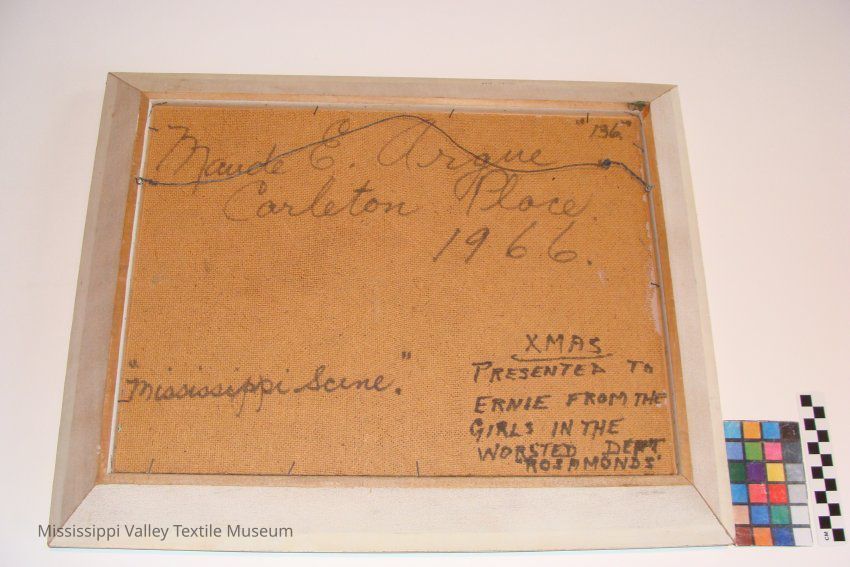 "196"
Maude E. Argue
Carleton Place.
1966.
"Mississippi Scene."
XMAS
PRESENTED TO
ERNIE FROM THE
GIRLS IN THE
WORSTED DEPT
"ROSAMONDS"
Mississippi Valley Textile Museum
CM